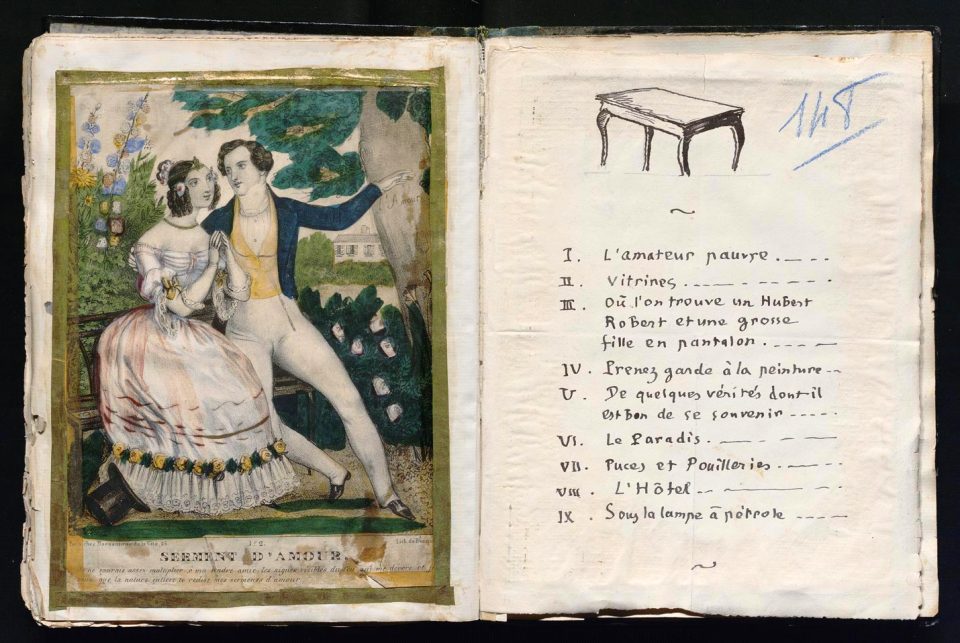 Amour
182.
SERMENT D'AMOUR.
ne saurais assez multiplier, ô ma tendre amie, les signes visibles du feu qui me dévore, et
que la nature entière te redise mes sermens d'amour.
148
~
I. L'amateur pauvre
II. Vitrines
III. Où l'on trouve un Hubert
Robert et une grosse
fille en pantalon
IV. Prenez garde à la peinture
V. De quelques vérités dont il
est bon de se souvenir
VI. Le Paradis
VII. Puces et Pouilleries
VIII. L'Hôtel
IX. Sous la lampe à pétrole
~